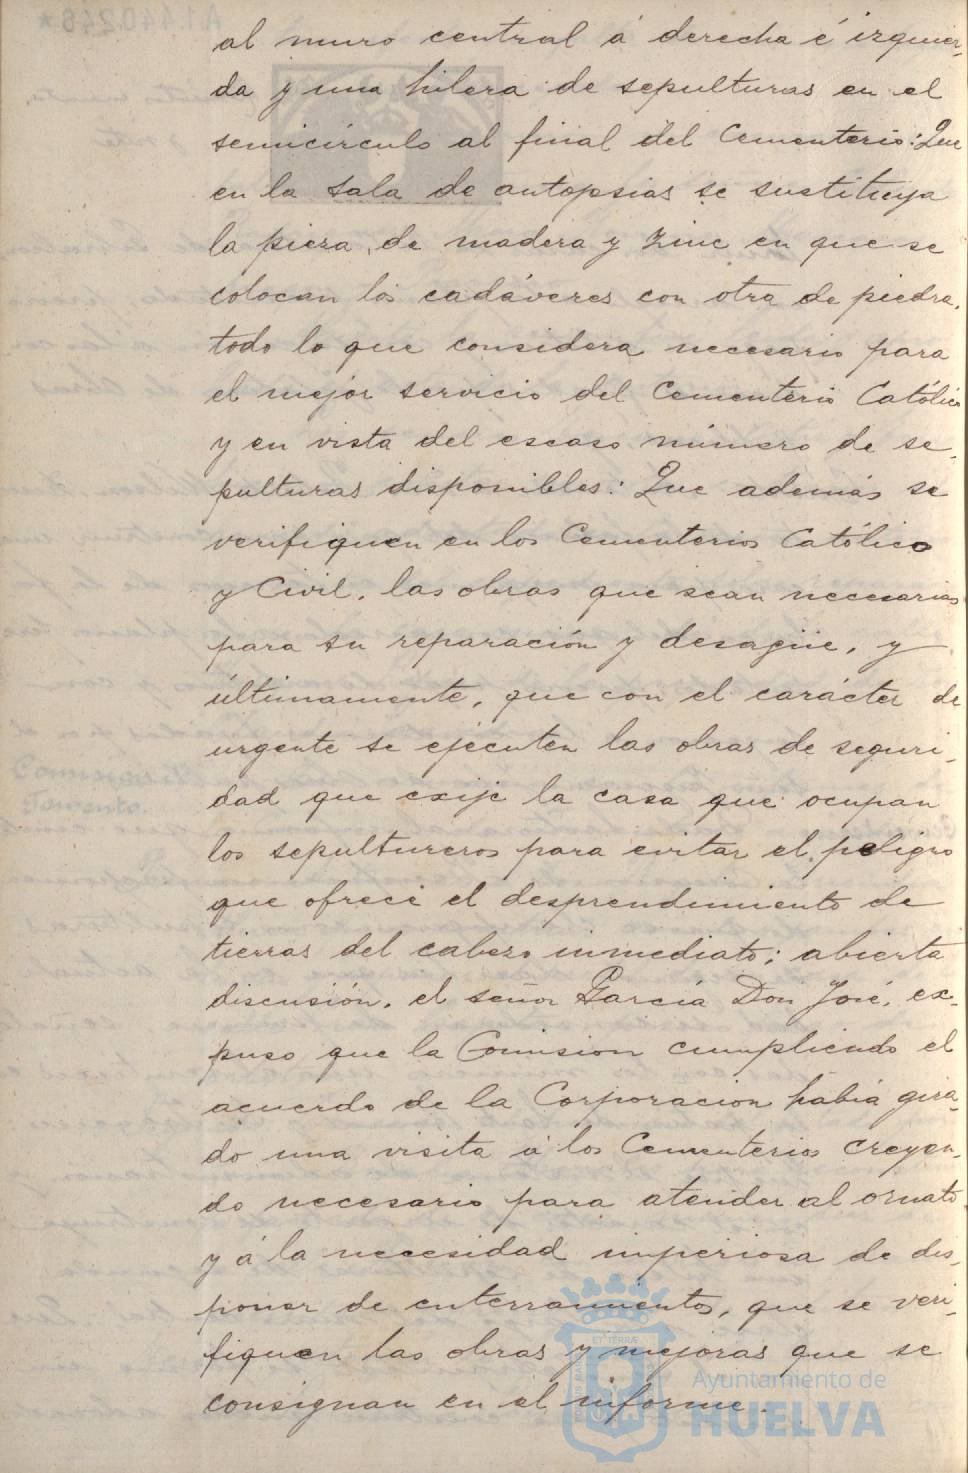 al muro central á derecha é izquier-
da y una hilera de sepulturas en el
semicírculo al final del Cementerio: Que
en la sala de autopsias se sustituya
la pieza de madera y zinc en que se
colocan los cadáveres con otra de piedra,
todo lo que considera necesario para
el mejor servicio del Cementerio Católico
y en vista del escaso número de se-
pulturas disponibles: Que además se
verifiquen en los Cementerios Católico
y Civil, las obras que sean necesarias
para su reparación y desagüe, y
últimamente, que con el carácter de
urgente se ejecuten las obras de seguri-
dad que exije la casa que ocupan
los sepultureros para evitar el peligro
que ofrece el desprendimiento de
tierras del cabezo inmediato; abierta
discusión, el señor García Don José, ex-
puso que la Comision cumpliendo el
acuerdo de la Corporacion había gira-
do una visita á los Cementerios creyen-
do necesario para atender al ornato
y á la necesidad imperiosa de dis-
poner de enterramientos, que se veri-
fiquen las obras y mejoras que se
consignan en el informe.
Ayuntamiento de
HUELVA